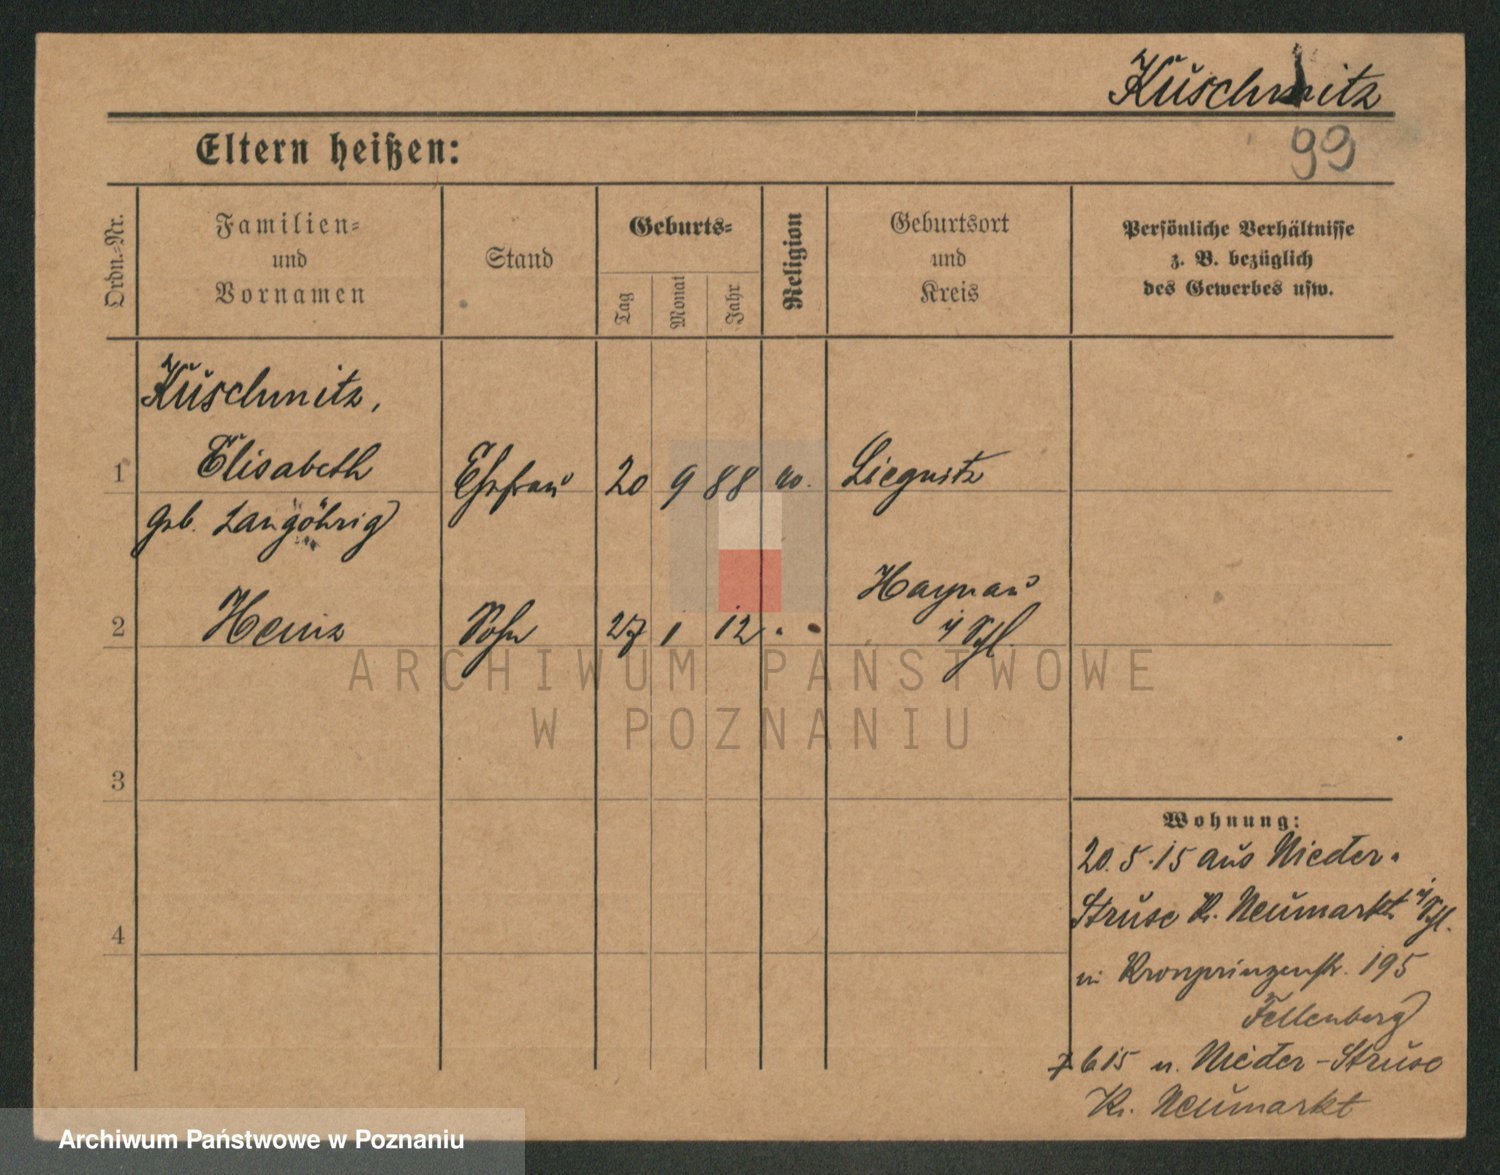 Kuschmitz
99
Eltern heißen:
Ordn.=Nr.
Familien=
und
Vornamen
Stand
Geburts=
Tag
Monat
Jahr
Religion
Geburtsort
und
Kreis
Persönliche Verhältnisse
z. B. bezüglich
des Gewerbes usw.
Kuschmitz,
1 Elisabeth Ehefrau 20 9 88 Liegnitz
geb. Langöhrig
2 Heinz Sohn 27 1 12 " Haynau
i/Schl
3
4
Wohnung:
20.5.15 aus Nieder-
Struse Kr. Neumarkt i/Schl.
n. Kronprinzenstr. 195
Fellenberg
7 6 15 n. Nieder-Struse
Kr. Neumarkt
ARCHIWUM PAŃSTWOWE
W POZNANIU
Archiwum Państwowe w Poznaniu